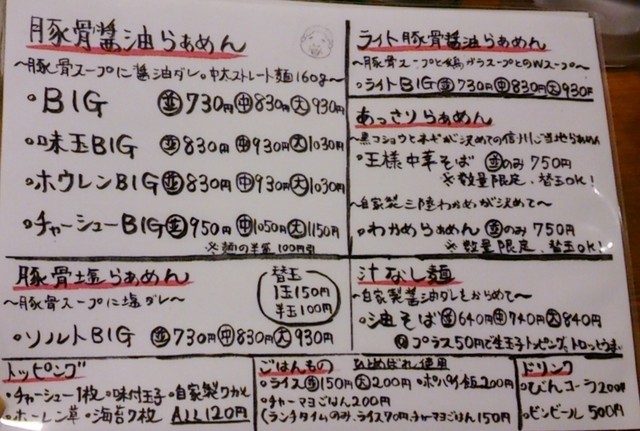 豚骨醤油らぁめん
〜豚骨スープに醤油ダレ。中太ストレート麺160g〜
・BIG 並730円 中830円 大930円
・味玉BIG 並830円 中930円 大1030円
・ホウレンBIG 並830円 中930円 大1030円
・チャーシューBIG 並950円 中1050円 大1150円
※麺の半量100円引
豚骨塩らぁめん
〜豚骨スープに塩ダレ〜
替玉
1玉150円
半玉100円
・ソルトBIG 並730円 中830円 大930円
ライト豚骨醤油らぁめん
〜豚骨スープと鶏ガラスープとのWスープ〜
・ライトBIG 並730円 中830円 大930円
あっさりらぁめん
〜黒コショウとネギが決めての信州ご当地らぁめん
・王様中華そば 並のみ750円
※数量限定、替玉OK!
〜自家製三陸わかめが決めて〜
・わかめらぁめん 並のみ750円
※数量限定、替玉OK!
汁なし麺
〜自家製醤油ダレをからめて〜
・油そば 並640円 中740円 大840円
プラス50円で生玉子トッピング、トロッとうまい
トッピング
・チャーシュー1枚・味付玉子・自家製ワカメ
・ホーレン草・海苔7枚 ALL120円
ごはんもの ひとめぼれ使用
・ライス 並150円 大200円 ・ポパイ飯200円
・チャーマヨごはん200円
(ランチタイムのみ、ライス90円、チャーマヨごはん150円)
ドリンク
・びんコーラ200円
・ビンビール500円